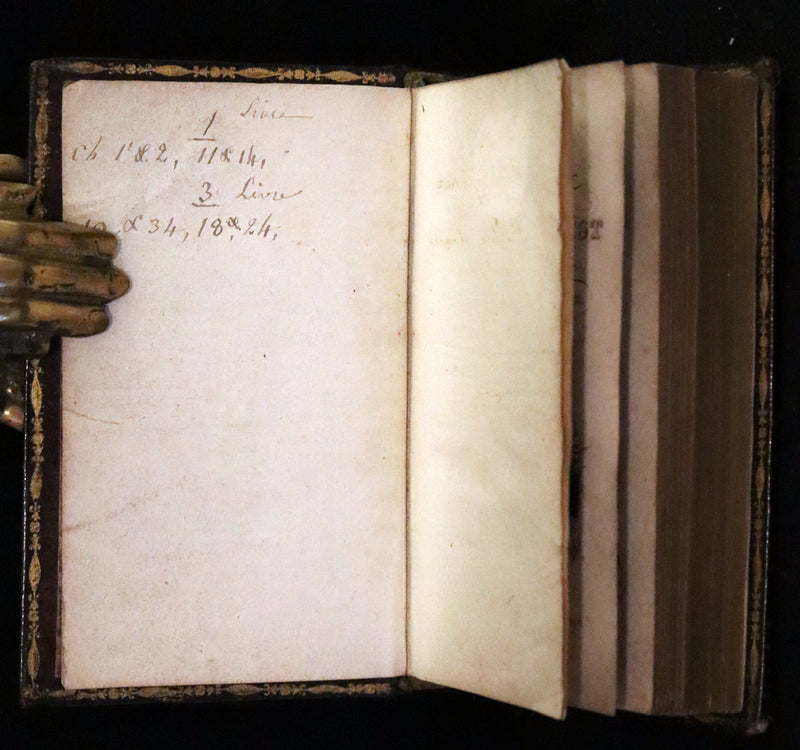 1 Livre
ch 1 & 2, 11 & 14,
3 Livre
& 34, 18 & 24,
ST